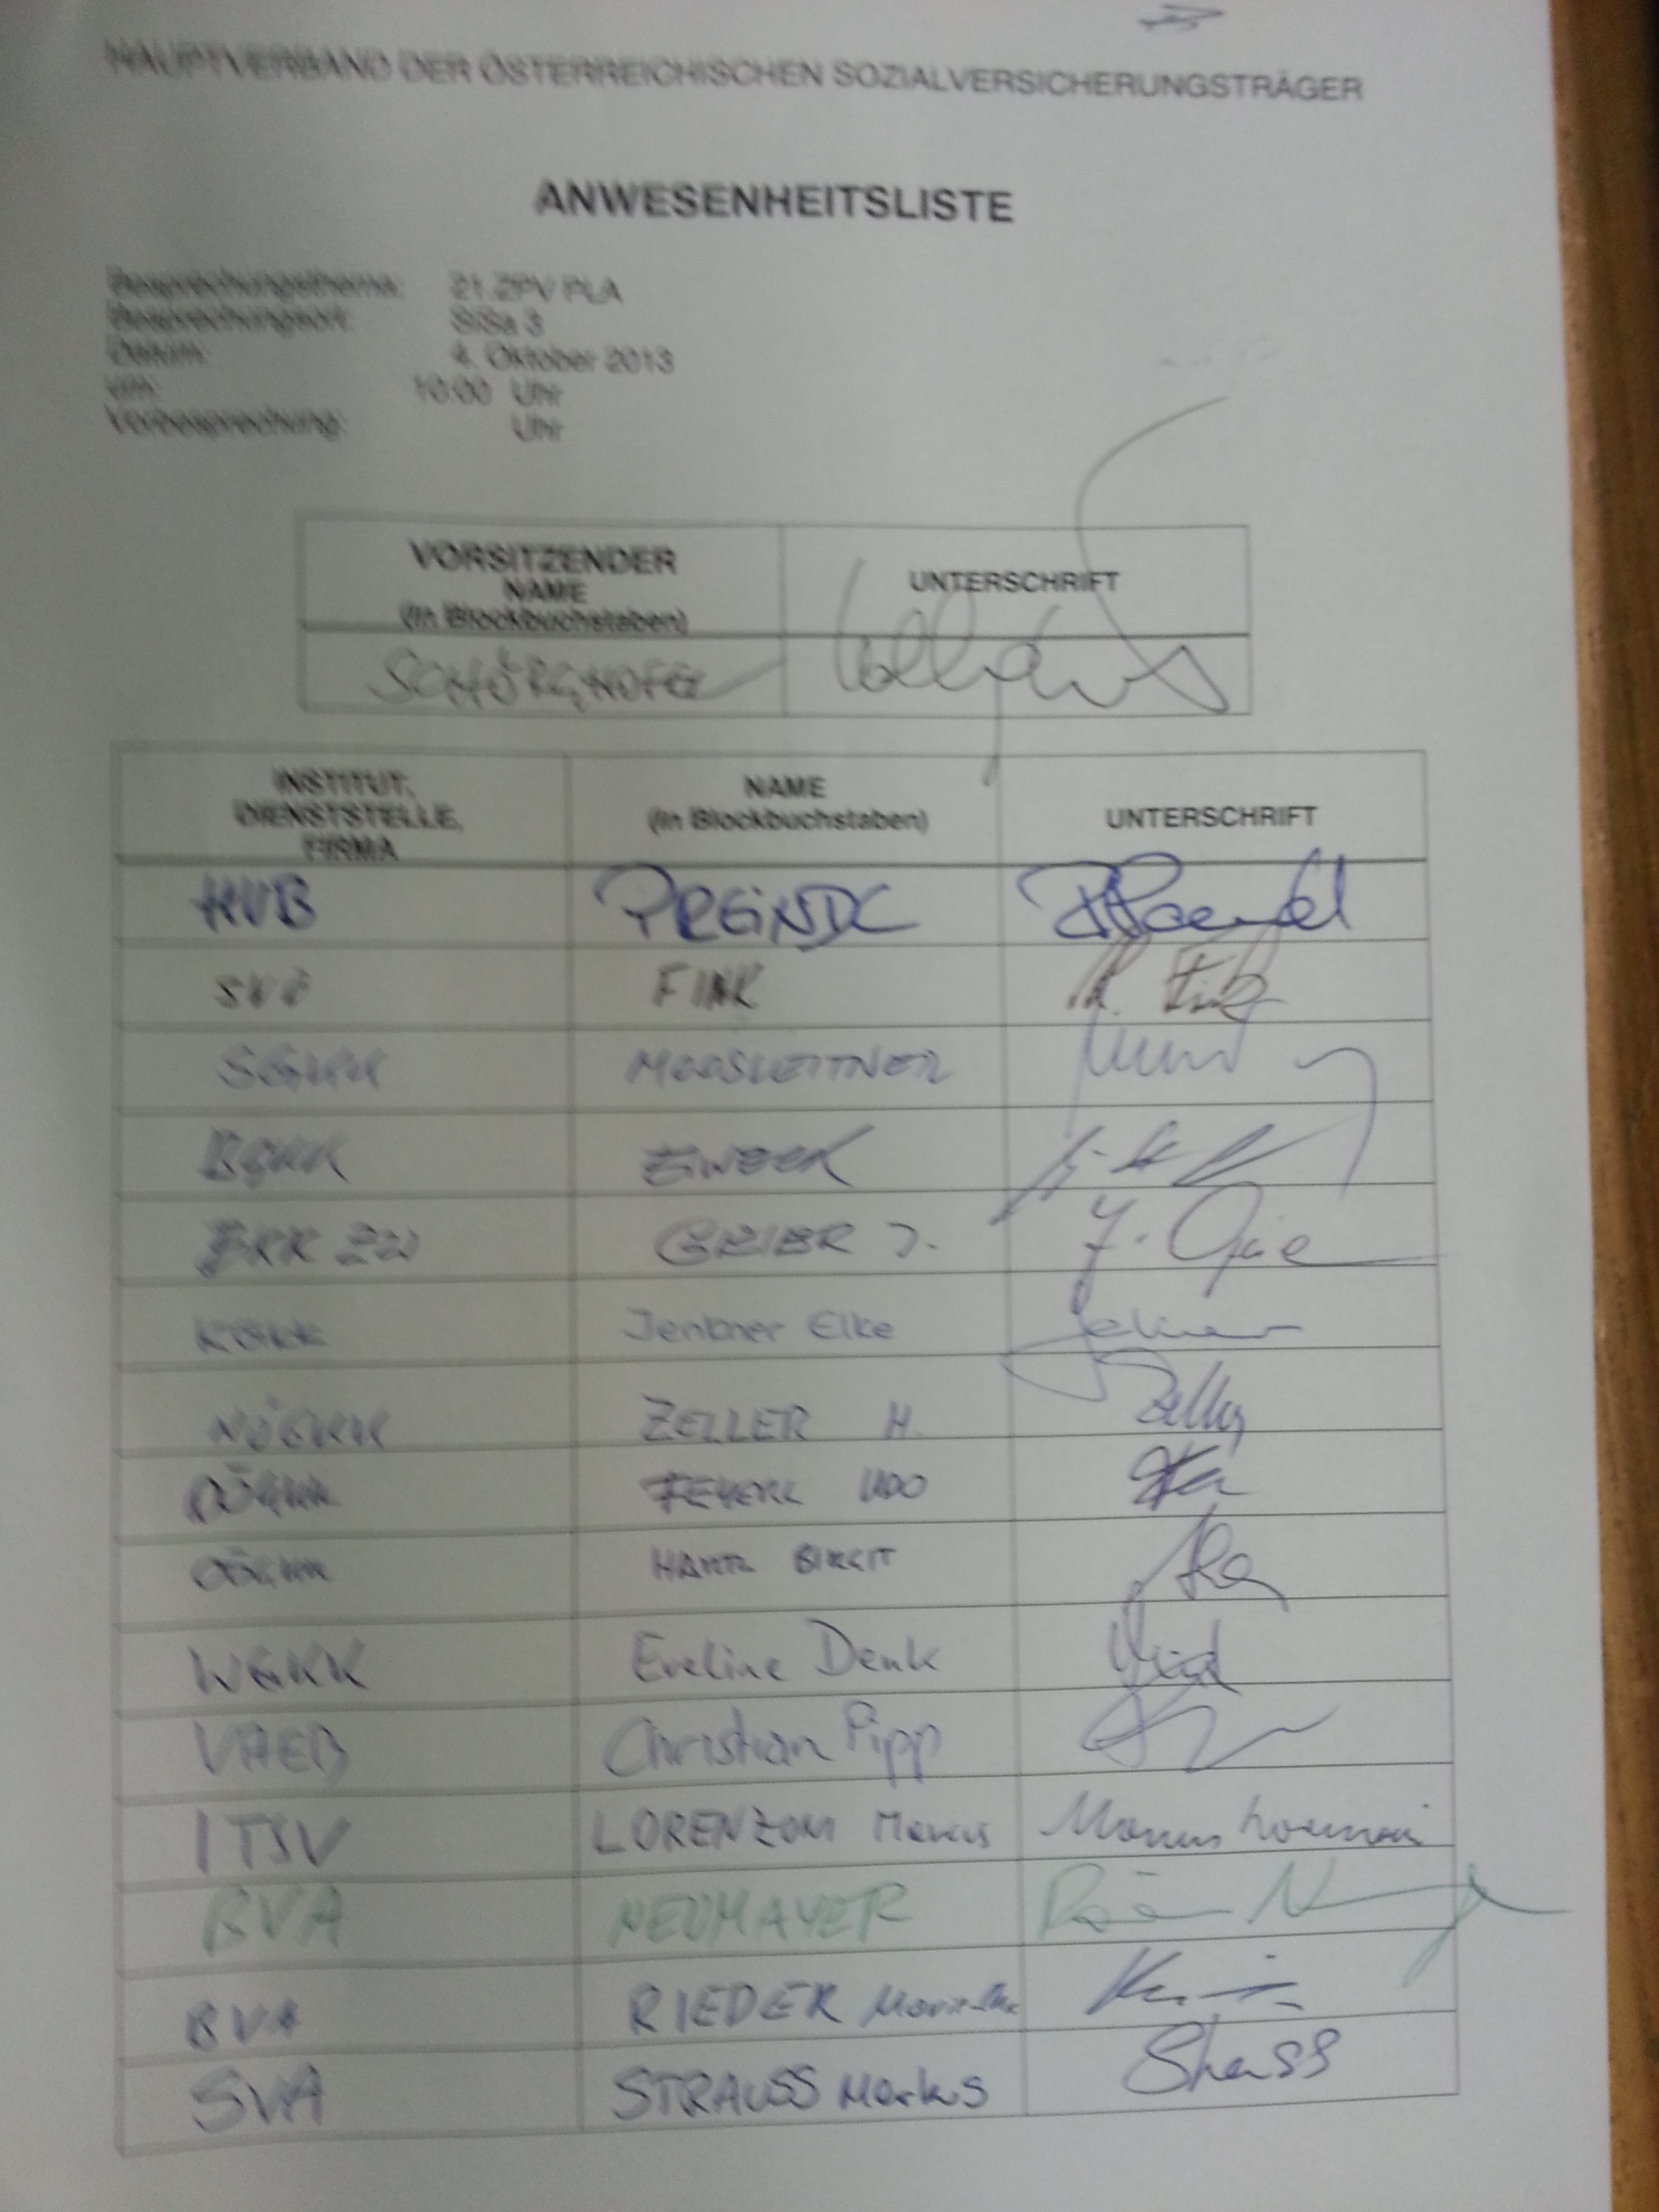 HAUPTVERBAND DER ÖSTERREICHISCHEN SOZIALVERSICHERUNGSTRÄGER
ANWESENHEITSLISTE
Besprechungsthema: 21. ZPV PLA
Besprechungsort: SiSa 3
Datum: 4. Oktober 2013
um: 10:00 Uhr
Vorbesprechung: Uhr
VORSITZENDER
NAME
(in Blockbuchstaben)
UNTERSCHRIFT
SCHÖRGHOFER
INSTITUT,
DIENSTSTELLE,
FIRMA
NAME
(in Blockbuchstaben)
UNTERSCHRIFT
HVB PREiNDL
FINK R. Fink
SGKK MOOSLEITNER
BGKK
GEIER J. J. Geie
KGKK Elke
NÖGKK ZELLER H. Zeller
OÖGKK UDO
OÖGKK BIRGIT
WGKK Eveline Denk
VAEB Christian Pipp
ITSV LORENZONI Marcus Marcus Lorenzoni
BVA NEUMAYER
BVA RIEDER
SVA STRAUSS Markus Strauss